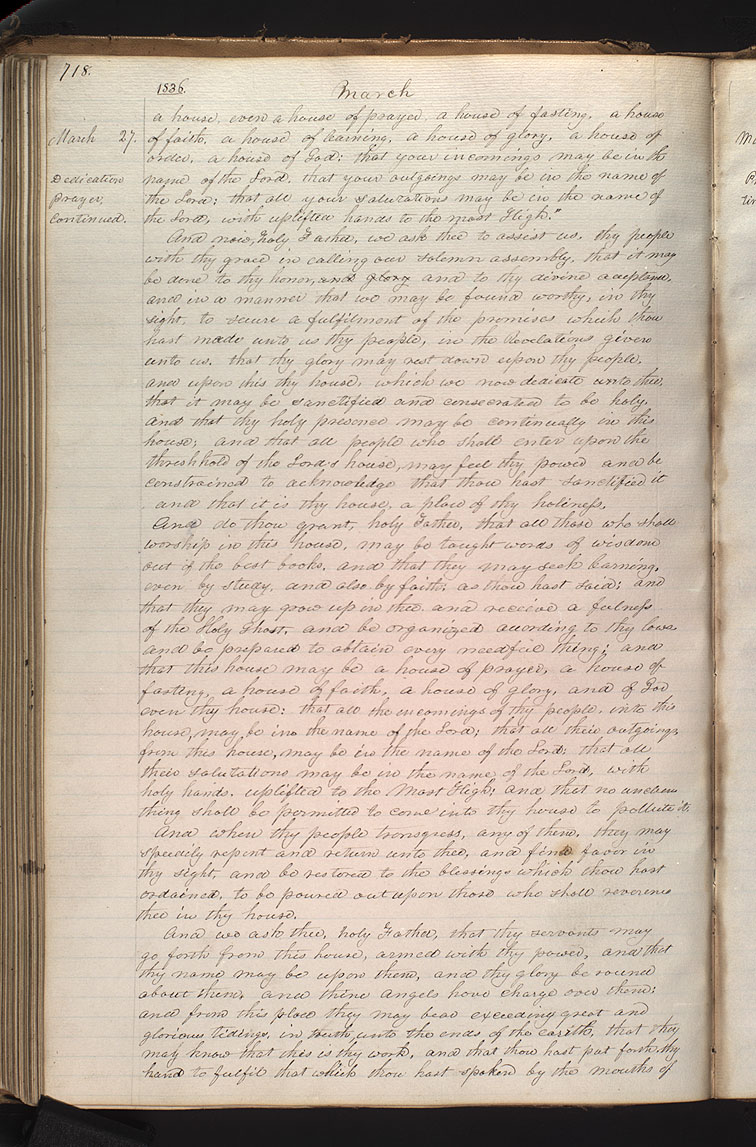 718.
1836.
March
a house, even a house of prayer, a house of fasting, a house
March 27.
of faith, a house of learning, a house of glory, a house of
order, a house of God: that your incomings may be in the
Dedication
name of the Lord, that your outgoings may be in the name of
prayer,
the Lord; that all your salutations may be in the name of
continued.
the Lord, with uplifted hands to the most High."
And now, holy Father, we ask thee to assist us, thy people
with thy grace in calling our solemn assembly, that it may
be done to thy honor, and glory and to thy divine acceptance,
and in a manner that we may be found worthy, in thy
sight, to secure a fulfilment of the promises which thou
hast made unto us thy people, in the Revelations given
unto us. that thy glory may rest down upon thy people,
and upon this thy house, which we now dedicate unto thee,
that it may be sanctified and consecrated to be holy,
and that thy holy presence may be continually in this
house; and that all people who shall enter upon the
threshhold of the Lord's house, may feel thy power and be
constrained to acknowledge that thou hast sanctified it
and that it is thy house, a place of thy holiness.
And do thou grant, holy Father, that all those who shall
worship in this house, may be taught words of wisdom
out of the best books, and that they may seek learning,
even by study, and also by faith; as thou hast said; and
that they may grow up in thee and receive a fulness
of the Holy Ghost, and be organized according to thy laws
and be prepared to obtain every needful thing; and
that this house may be a house of prayer, a house of
fasting, a house of faith, a house of glory, and of God
even thy house: that all the incomings of thy people, into this
house, may be in the name of the Lord; that all their outgoings,
from this house, may be in the name of the Lord; that all
their salutations may be in the name of the Lord, with
holy hands, uplifted to the Most High; and that no unclean
thing shall be permitted to come into thy house to pollute it.
And when thy people transgress, any of them, they may
speedily repent and return unto thee, and find favor in
thy sight, and be restored to the blessings which thou hast
ordained, to be poured out upon those who shall reverence
thee in thy house.
And we ask thee, holy Father, that thy servants may
go forth from this house, armed with thy power, and that
thy name may be upon them, and thy glory be round
about them, and thine angels have charge over them;
and from this place they may bear exceeding great and
glorious tidings, in truth, unto the ends of the earth, that they
may know that this is thy work, and that thou hast put forth thy
hand to fulfil that which thou hast spoken by the mouths of